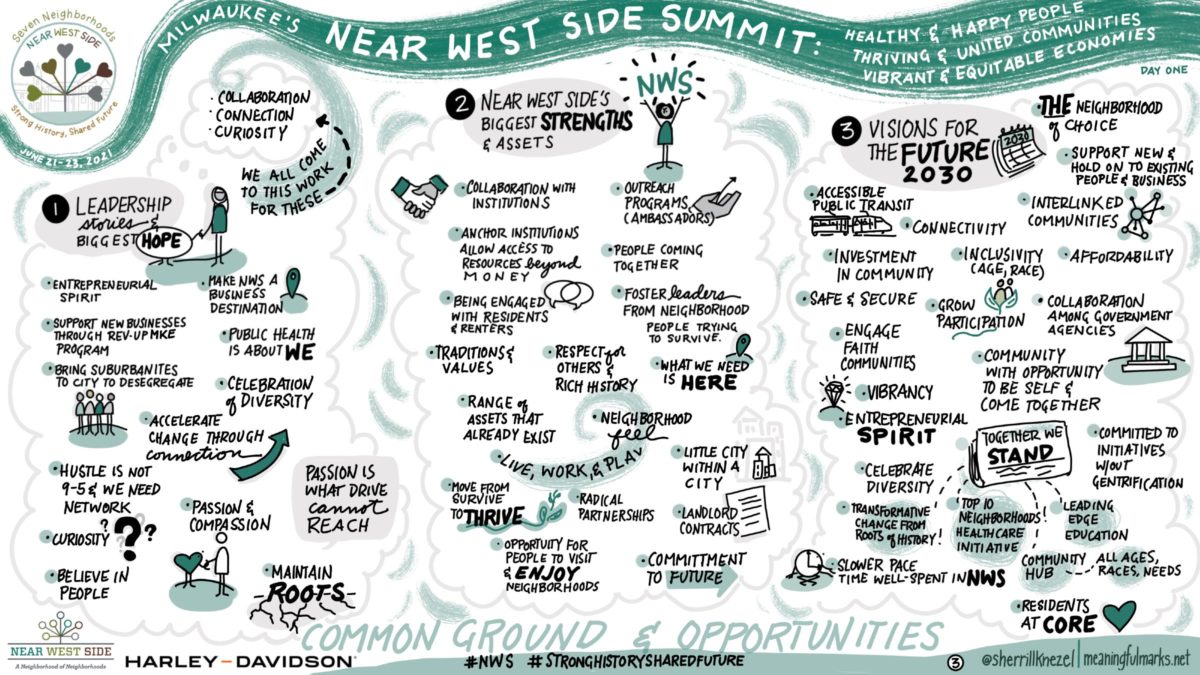 Seven Neighborhoods
NEAR WEST SIDE
Strong History, Shared Future
JUNE 21-23, 2021
MILWAUKEE'S
NEAR WEST SIDE SUMMIT:
HEALTHY & HAPPY PEOPLE
THRIVING & UNITED COMMUNITIES
VIBRANT & EQUITABLE ECONOMIES
DAY ONE
• COLLABORATION
• CONNECTION
• CURIOSITY
WE ALL COME
TO THIS WORK
FOR THESE
1 LEADERSHIP
stories &
BIGGEST HOPE
• ENTREPRENEURIAL
SPIRIT
• MAKE NWS A
BUSINESS
DESTINATION
• SUPPORT NEW BUSINESSES
THROUGH REV-UP MKE
PROGRAM
• PUBLIC HEALTH
IS ABOUT WE
• BRING SUBURBANITES
TO CITY TO DESEGREGATE
• CELEBRATION
of DIVERSITY
• ACCELERATE
CHANGE THROUGH
connection
• HUSTLE IS NOT
9-5 & WE NEED
NETWORK
PASSION IS
WHAT DRIVE
cannot
REACH
• PASSION &
COMPASSION
• CURIOSITY
? ? ?
• BELIEVE IN
PEOPLE
• MAINTAIN
ROOTS
2 NEAR WEST SIDE'S
BIGGEST STRENGTHS
& ASSETS
NWS
• COLLABORATION WITH
INSTITUTIONS
• OUTREACH
PROGRAMS
(AMBASSADORS)
• ANCHOR INSTITUTIONS
ALLOW ACCESS TO
RESOURCES beyond
MONEY
• PEOPLE COMING
TOGETHER
• BEING ENGAGED
WITH RESIDENTS
& RENTERS
• FOSTER leaders
FROM NEIGHBORHOOD
PEOPLE TRYING
TO SURVIVE.
• TRADITIONS &
VALUES
• RESPECT for
OTHERS &
RICH HISTORY
• WHAT WE NEED
IS HERE
• RANGE of
ASSETS THAT
ALREADY EXIST
• NEIGHBORHOOD
feel
• LIVE, WORK, & PLAY
• LITTLE CITY
WITHIN A
CITY
• MOVE FROM
SURVIVE
TO THRIVE
• RADICAL
PARTNERSHIPS
• LANDLORD
CONTRACTS
• OPPORTUITY FOR
PEOPLE TO VISIT
& ENJOY
NEIGHBORHOODS
• COMMITTMENT
TO FUTURE
3 VISIONS FOR
THE FUTURE
2030
2030
• THE NEIGHBORHOOD
of CHOICE
• SUPPORT NEW &
HOLD ON TO EXISTING
PEOPLE & BUSINESS
• ACCESSIBLE
PUBLIC TRANSIT
• CONNECTIVITY
INTERLINKED
COMMUNITIES
• INVESTMENT
IN COMMUNITY
• INCLUSIVITY
(AGE, RACE)
• AFFORDABILITY
• SAFE & SECURE
• GROW
PARTICIPATION
• COLLABORATION
AMONG GOVERNMENT
AGENCIES
• ENGAGE
FAITH
COMMUNITIES
• COMMUNITY
WITH OPPORTUNITY
TO BE SELF &
COME TOGETHER
• VIBRANCY
• ENTREPRENEURIAL
SPIRIT
TOGETHER WE
STAND
• COMMITTED TO
INITIATIVES
W/OUT
GENTRIFICATION
• CELEBRATE
DIVERSITY
• TRANSFORMATIVE
CHANGE FROM
ROOTS of HISTORY!
• TOP 10
NEIGHBORHOODS!
HEALTHCARE
INITIATIVE
• LEADING
EDGE
EDUCATION
• SLOWER PACE
TIME WELL-SPENT IN NWS
COMMUNITY
HUB
ALL AGES,
RACES, NEEDS
• RESIDENTS
AT CORE
COMMON GROUND & OPPORTUNITIES
NEAR WEST SIDE
A Neighborhood of Neighborhoods
HARLEY-DAVIDSON
#NWS #STRONGHISTORYSHAREDFUTURE
3 @sherrillknezel | meaningfulmarks.net